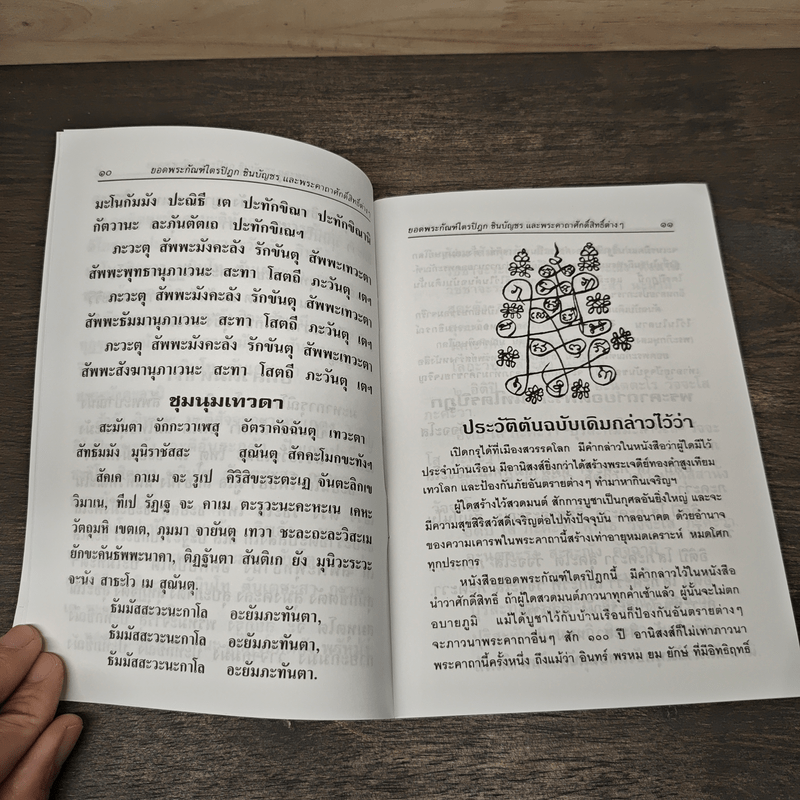 ๑๐ ยอดพระกัณฑ์ไตรปิฎก ชินบัญชร และพระคาถาศักดิ์สิทธิ์ต่างๆ
มะโนกัมมัง ปะณิธี เต ปะทักขิณา ปะทักขิณานิ
กัตวานะ ละภันตัตเถ ปะทักขิเณฯ
ภะวะตุ สัพพะมังคะลัง รักขันตุ สัพพะเทวะตา
สัพพะพุทธานุภาเวนะ สะทา โสตถี ภะวันตุ เตฯ
ภะวะตุ สัพพะมังคะลัง รักขันตุ สัพพะเทวะตา
สัพพะธัมมานุภาเวนะ สะทา โสตถี ภะวันตุ เตฯ
ภะวะตุ สัพพะมังคะลัง รักขันตุ สัพพะเทวะตา
สัพพะสังฆานุภาเวนะ สะทา โสตถี ภะวันตุ เตฯ
ชุมนุมเทวดา
สะมันตา จักกะวาเฬสุ อัตราคัจฉันตุ เทวะตา
สัทธัมมัง มุนิราชัสสะ สุณันตุ สัคคะโมกขะทังฯ
สัคเค กาเม จะ รูเป คิริสิขะระตะเฏ จันตะลิกเข
วิมาเน, ทีเป รัฏเฐ จะ คาเม ตะรุวะนะคะหะเน เคหะ
วัตถุมหิ เขตเต, ภุมมา จายันตุ เทวา ชะละถะละวิสะเม
ยักขะคันธัพพะนาคา, ติฏฐันตา สันติเก ยัง มุนิวะระวะ
จะนัง สาธะโว เม สุณันตุ.
ธัมมัสสะวะนะกาโล อะยัมภะทันตา,
ธัมมัสสะวะนะกาโล อะยัมภะทันตา,
ธัมมัสสะวะนะกาโล อะยัมภะทันตา.
ยอดพระกัณฑ์ไตรปิฎก ชินบัญชร และพระคาถาศักดิ์สิทธิ์ต่างๆ ๑๑
ประวัติต้นฉบับเดิมกล่าวไว้ว่า
เปิดกรุได้ที่เมืองสวรรคโลก มีคำกล่าวในหนังสือว่าผู้ใดมีไว้
ประจำบ้านเรือน มีอานิสงส์ยิ่งกว่าได้สร้างพระเจดีย์ทองคำสูงเทียม
เทวโลก และป้องกันภัยอันตรายต่างๆ ทำมาหากินเจริญฯ
ผู้ใดสร้างไว้สวดมนต์ สักการบูชาเป็นกุศลอันยิ่งใหญ่ และจะ
มีความสุขสิริสวัสดิ์เจริญต่อไปทั้งปัจจุบัน กาลอนาคต ด้วยอำนาจ
ของความเคารพในพระคาถานี้สร้างเท่าอายุหมดเคราะห์ หมดโศก
ทุกประการ
หนังสือยอดพระกัณฑ์ไตรปิฎกนี้ มีคำกล่าวไว้ในหนังสือ
นำว่าศักดิ์สิทธิ์ ถ้าผู้ใดสวดมนต์ภาวนาทุกค่ำเช้าแล้ว ผู้นั้นจะไม่ตก
อบายภูมิ แม้ได้บูชาไว้กับบ้านเรือนก็ป้องกันอันตรายต่างๆ
จะภาวนาพระคาถาอื่นๆ สัก ๑๐๐ ปี อานิสงส์ก็ไม่เท่าภาวนา
พระคาถานี้ครั้งหนึ่ง ถึงแม้ว่า อินทร์ พรหม ยม ยักษ์ ที่มีอิทธิฤทธิ์